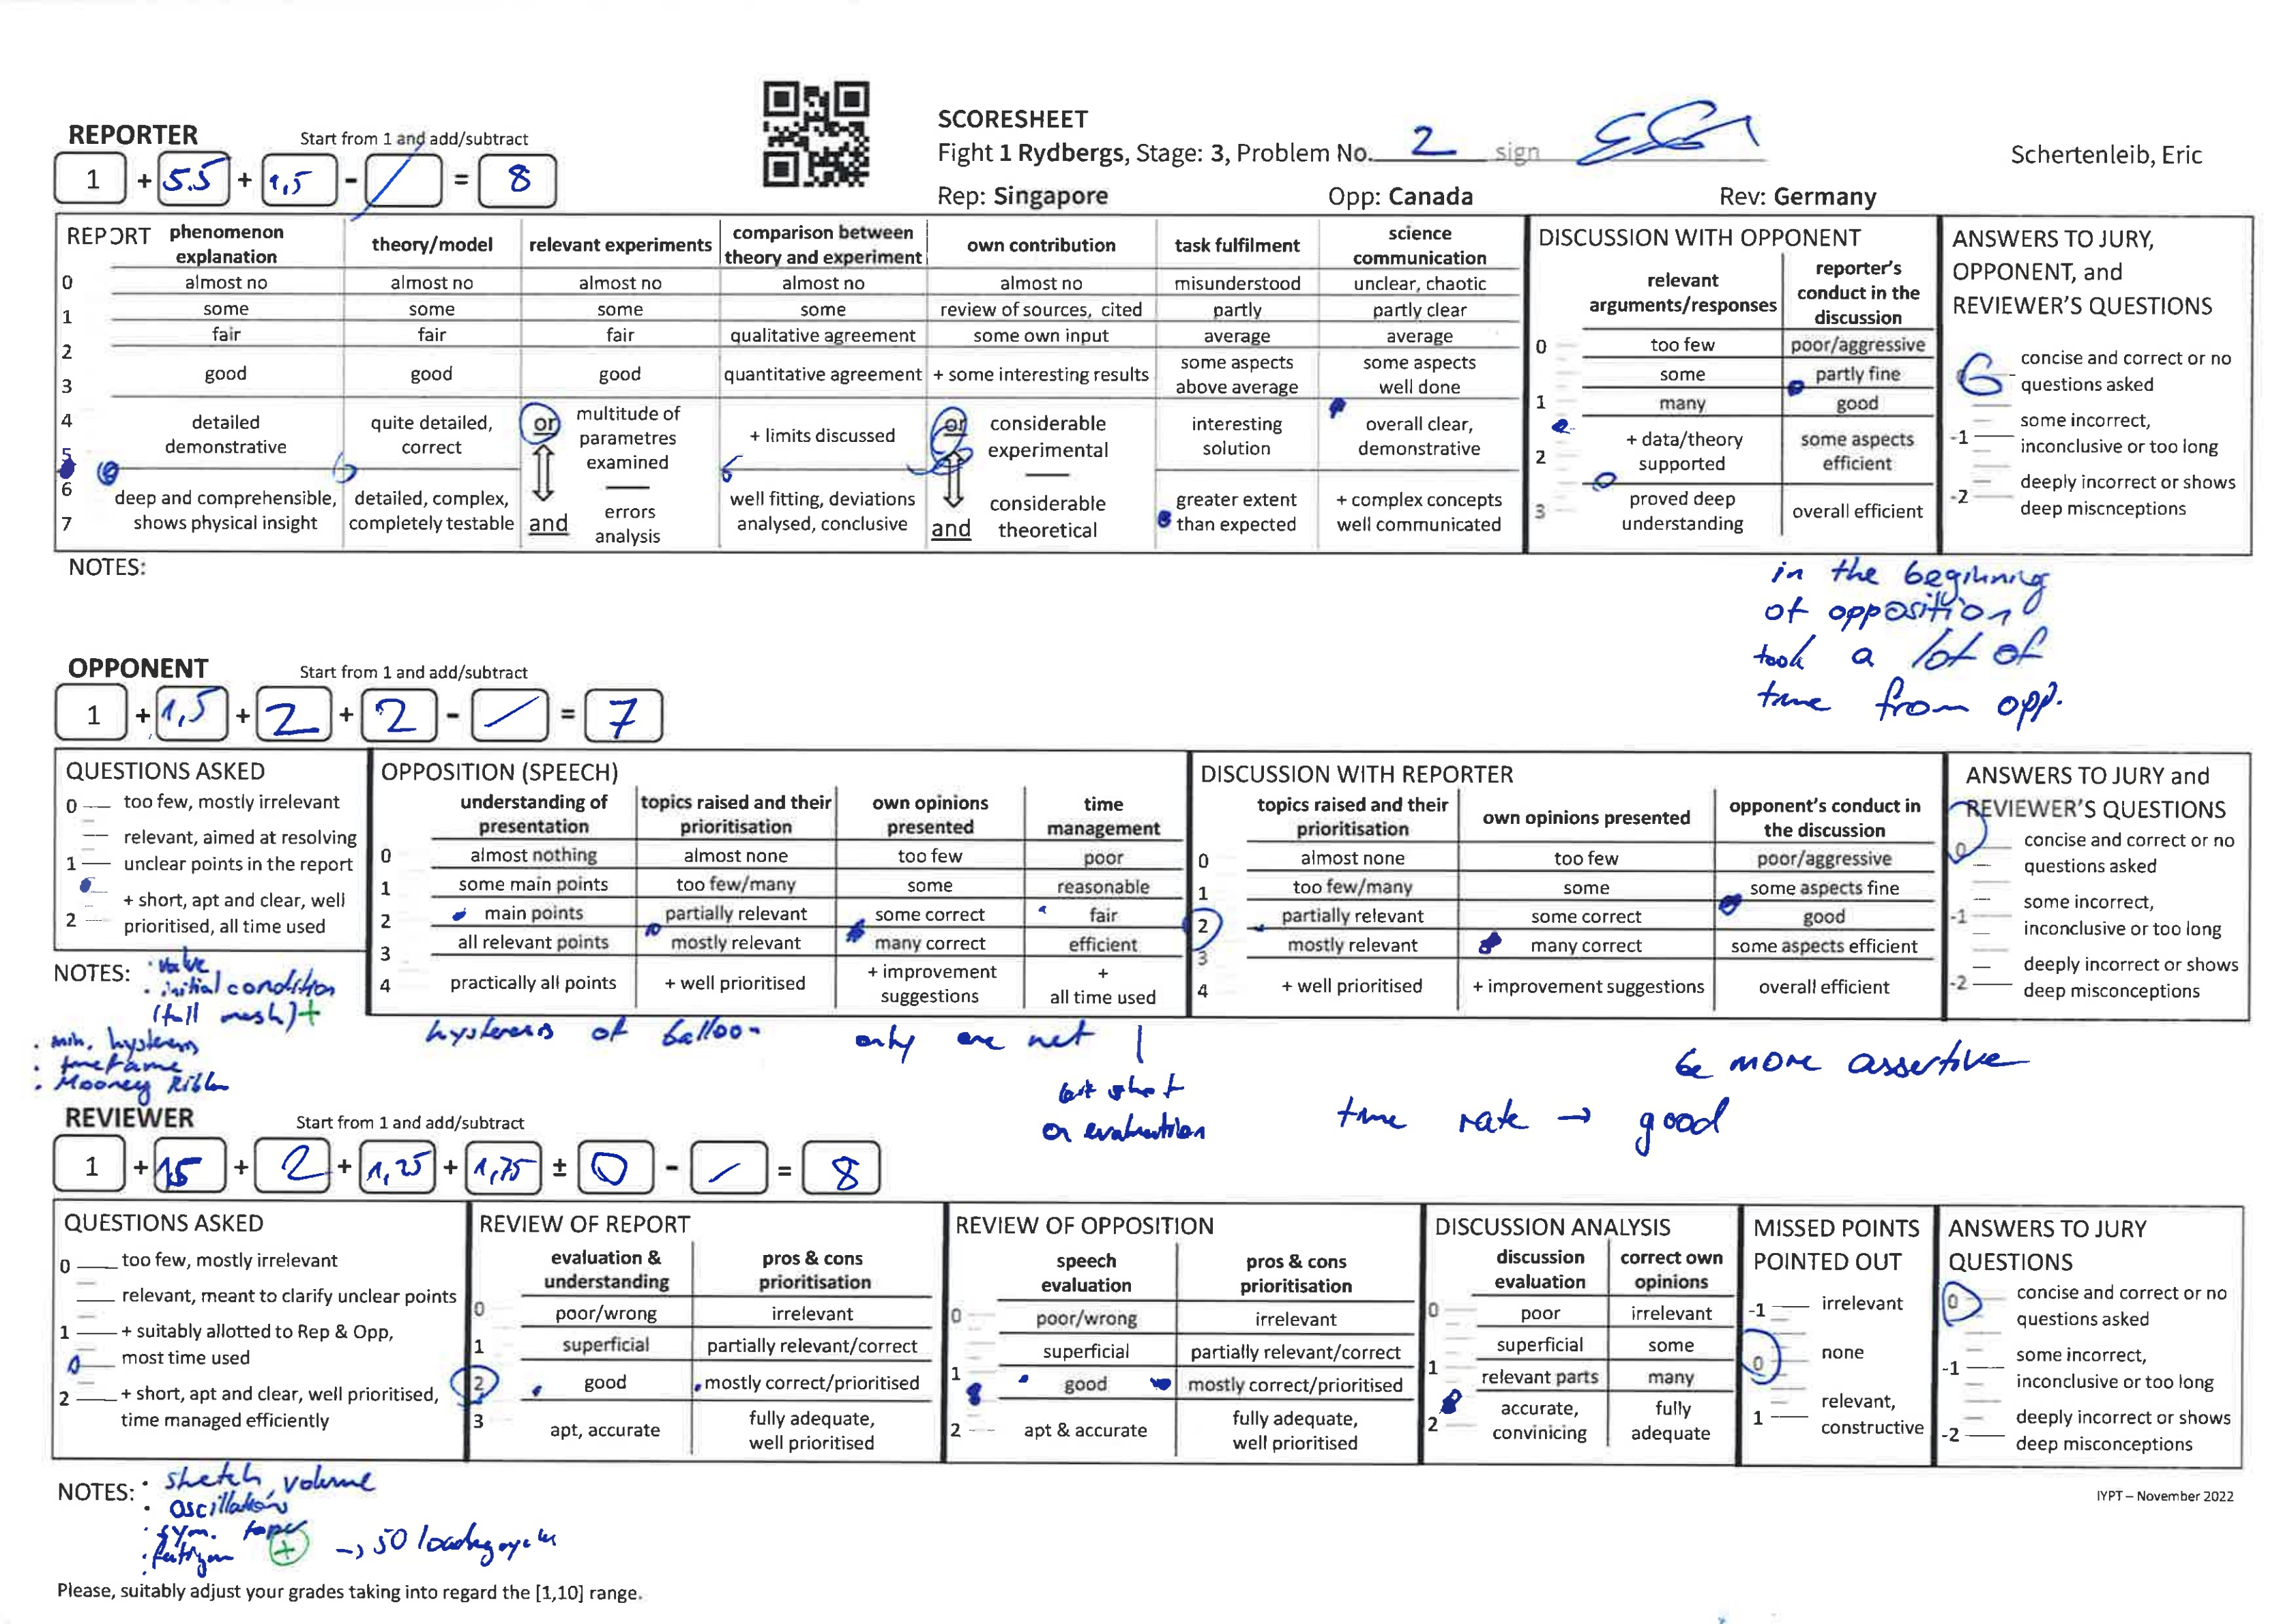 SCORESHEET
Fight 1 Rydbergs, Stage: 3, Problem No. 2 sign
Schertenleib, Eric
Rep: Singapore Opp: Canada Rev: Germany
REPORTER Start from 1 and add/subtract
1 + 5.5 + 1,5 - / = 8
REPORT
phenomenon explanation
theory/model
relevant experiments
comparison between theory and experiment
own contribution
task fulfilment
science communication
0 almost no almost no almost no almost no almost no misunderstood unclear, chaotic
1 some some some some review of sources, cited partly partly clear
2 fair fair fair qualitative agreement some own input average average
3 good good good quantitative agreement + some interesting results some aspects above average some aspects well done
4 detailed demonstrative quite detailed, correct or multitude of parametres examined + limits discussed or considerable experimental interesting solution overall clear, demonstrative
5
6 deep and comprehensible, shows physical insight detailed, complex, completely testable and errors analysis well fitting, deviations analysed, conclusive and considerable theoretical greater extent than expected + complex concepts well communicated
7
DISCUSSION WITH OPPONENT
relevant arguments/responses
reporter's conduct in the discussion
0 too few poor/aggressive
some partly fine
1 many good
2 + data/theory supported some aspects efficient
3 proved deep understanding overall efficient
ANSWERS TO JURY, OPPONENT, and REVIEWER'S QUESTIONS
concise and correct or no questions asked
-1 some incorrect, inconclusive or too long
-2 deeply incorrect or shows deep miscnceptions
NOTES:
in the beginning
of opposition
took a lot of
time from opp.
OPPONENT Start from 1 and add/subtract
1 + 1,5 + 2 + 2 - / = 7
QUESTIONS ASKED
0 too few, mostly irrelevant
relevant, aimed at resolving
1 unclear points in the report
+ short, apt and clear, well
2 prioritised, all time used
OPPOSITION (SPEECH)
understanding of presentation
topics raised and their prioritisation
own opinions presented
time management
0 almost nothing almost none too few poor
1 some main points too few/many some reasonable
2 main points partially relevant some correct fair
3 all relevant points mostly relevant many correct efficient
4 practically all points + well prioritised + improvement suggestions + all time used
DISCUSSION WITH REPORTER
topics raised and their prioritisation
own opinions presented
opponent's conduct in the discussion
0 almost none too few poor/aggressive
1 too few/many some some aspects fine
2 partially relevant some correct good
3 mostly relevant many correct some aspects efficient
4 + well prioritised + improvement suggestions overall efficient
ANSWERS TO JURY and REVIEWER'S QUESTIONS
0 concise and correct or no questions asked
-1 some incorrect, inconclusive or too long
-2 deeply incorrect or shows deep misconceptions
NOTES:
· valve
· initial condition
(full mesh) +
· min. hysteresis
· timeframe
· Mooney
hysteresis of balloon
only one net
be more assertive
time rate → good
REVIEWER Start from 1 and add/subtract
1 + 1,5 + 2 + 1,25 + 1,75 ± 0 - / = 8
QUESTIONS ASKED
0 too few, mostly irrelevant
relevant, meant to clarify unclear points
1 + suitably allotted to Rep & Opp,
most time used
2 + short, apt and clear, well prioritised,
time managed efficiently
REVIEW OF REPORT
evaluation & understanding
pros & cons prioritisation
0 poor/wrong irrelevant
1 superficial partially relevant/correct
2 good mostly correct/prioritised
3 apt, accurate fully adequate, well prioritised
REVIEW OF OPPOSITION
speech evaluation
pros & cons prioritisation
0 poor/wrong irrelevant
superficial partially relevant/correct
1 good mostly correct/prioritised
2 apt & accurate fully adequate, well prioritised
DISCUSSION ANALYSIS
discussion evaluation
correct own opinions
0 poor irrelevant
superficial some
1 relevant parts many
2 accurate, convinicing fully adequate
MISSED POINTS POINTED OUT
-1 irrelevant
0 none
1 relevant, constructive
ANSWERS TO JURY QUESTIONS
0 concise and correct or no questions asked
-1 some incorrect, inconclusive or too long
-2 deeply incorrect or shows deep misconceptions
NOTES:
· sketch, volume
· oscillations
· sym.
+ → 50
IYPT – November 2022
Please, suitably adjust your grades taking into regard the [1,10] range.